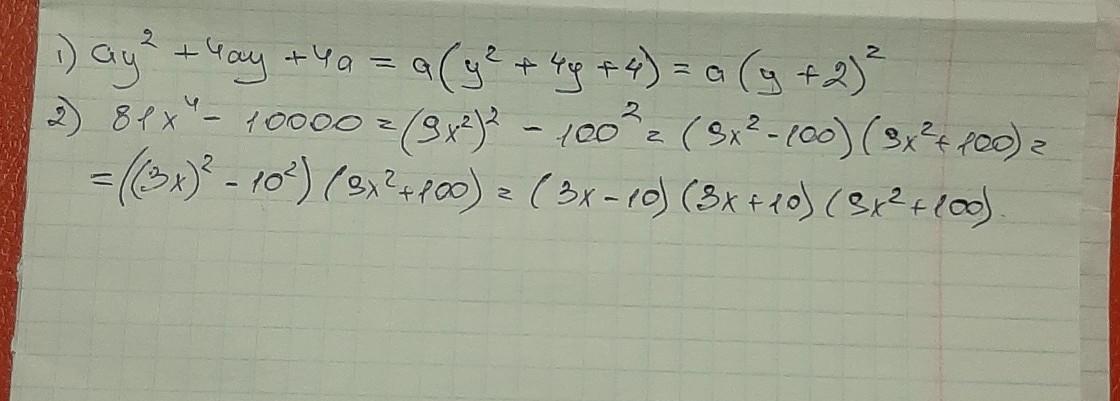 1) ay² + 4ay + 4a = a(y² + 4y + 4) = a(y + 2)²
2) 81x⁴ - 10000 = (9x²)² - 100² = (9x² - 100)(9x² + 100) =
= ((3x)² - 10²)(9x² + 100) = (3x - 10)(3x + 10)(9x² + 100).